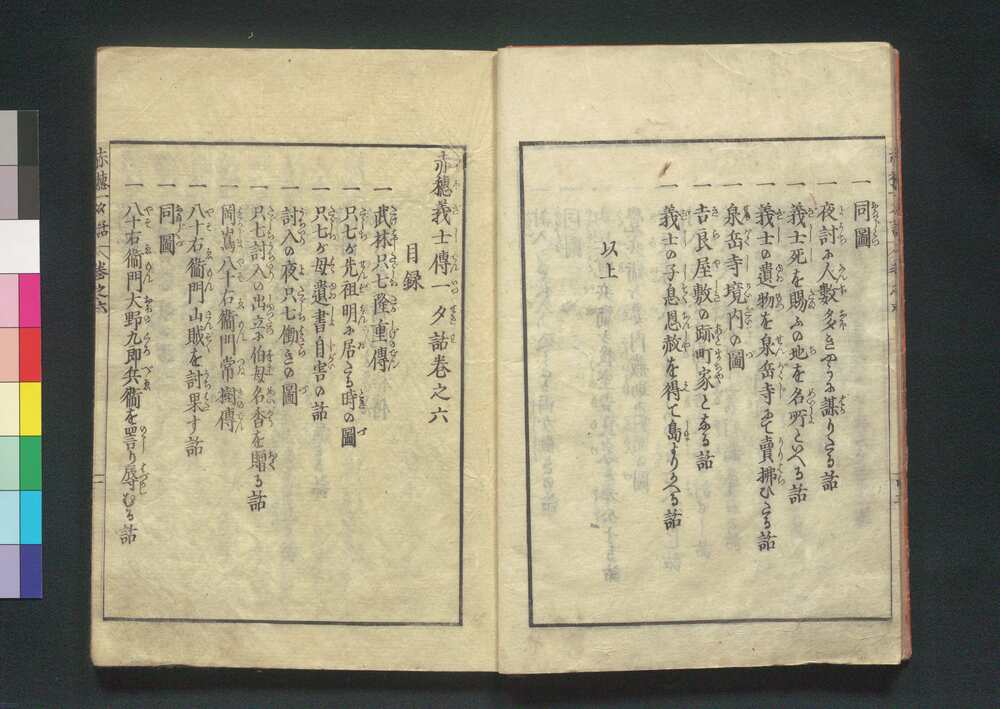 一 同圖
一 夜討の人數多きやうに謀りたる話
一 義士死を賜ふの地を名所といへる話
一 義士の遺物を泉岳寺にて賣拂ひたる話
一 泉岳寺境内の圖
一 吉良屋敷の跡町家となる話
一 義士の子息恩赦を得て島よりかへる話
以上
赤穗義士傳一夕話卷之六
目録
一 武林只七隆重傳
一 只七が先祖明に居たる時の圖
一 只七が母遺書自害の話
一 討入の夜只七働きの圖
一 只七討入の出立に伯母名香を贈る話
一 岡嶌八十右衞門常樹傳
一 八十右衞門山賊を討果す話
一 同圖
一 八十右衞門大野九郎兵衞を詈り辱むる話
赤穗一夕話 卷之六